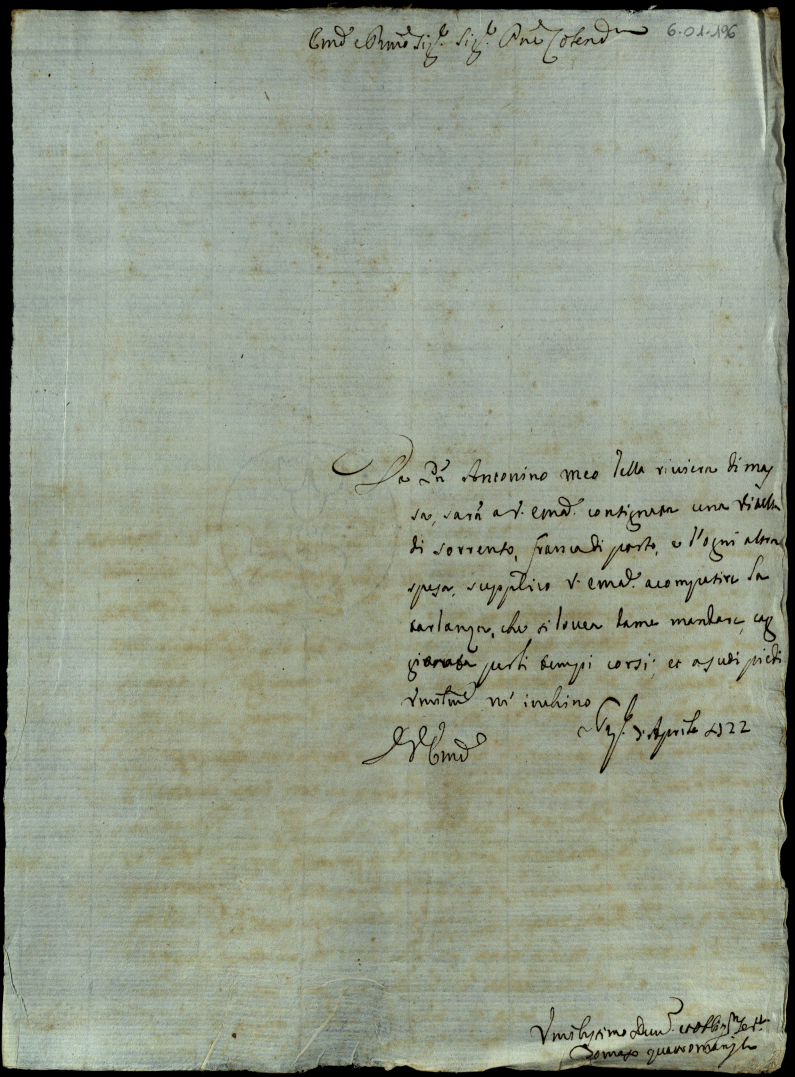 Em.o e R.mo Sig.r Sig.r P.ne Colend.mo
6-01-196
Da D.n Antonino meo della riviera di mas
sa, sarà a V. Emd.a consignata una Vitella
di Sorrento, franca di porto, e d'ogni altra
spesa, supplico V. Emd.a a compatire la
tardanza, che si dovea da me mandare, cag
gionata per li tempi corsi; et a suoi piedi
Umilm.e m'inchino
Nap.li 3 Aprile 1722
D. V. Em.a
Umilissimo Div.mo et obblig.mo Ser.re